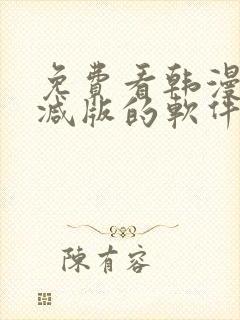 免費看韩漫
减版的軟件
陳有容